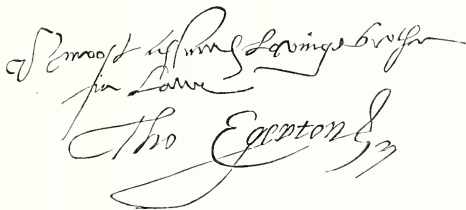 moost assured Lovinge brother
in Lawe
Tho Egerton